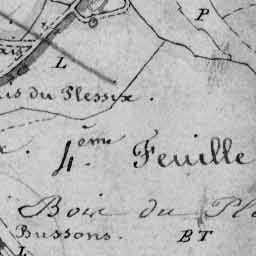 P
L
us du Plessix.
4.ème Feuille
Bois du Pl
Bussons. BT
L